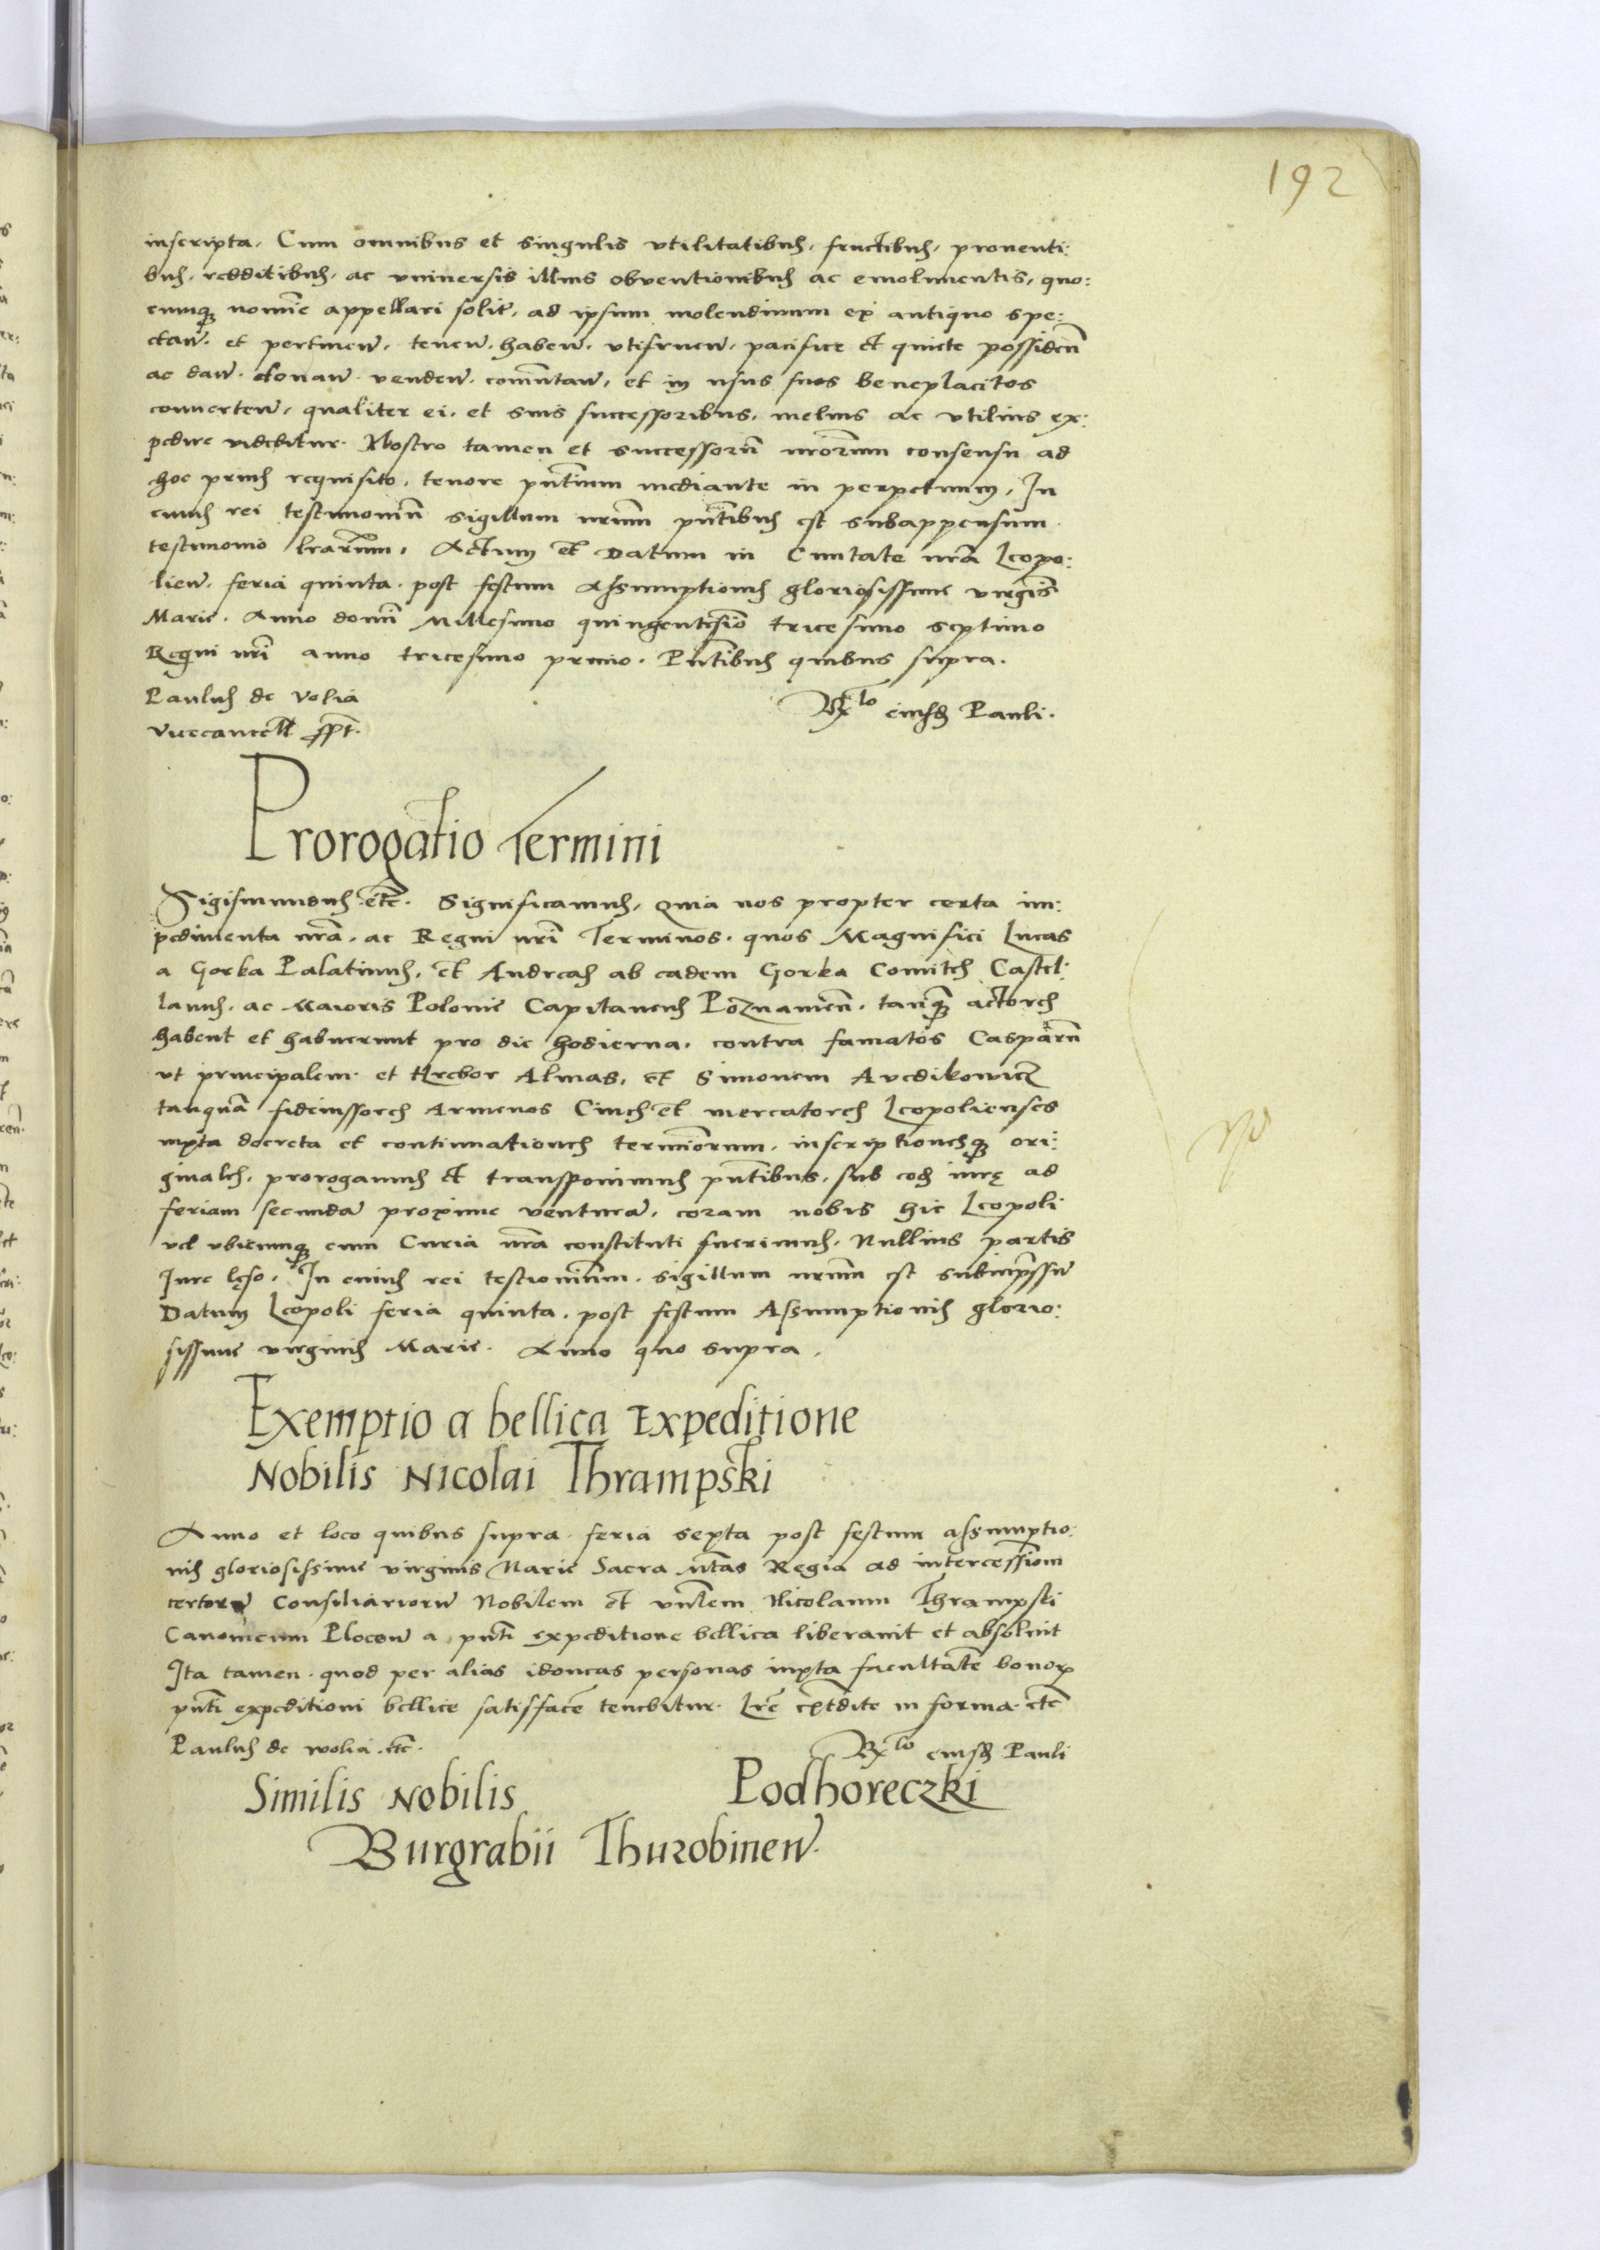 192
inscripta, Cum omnibus et singulis vtilitatibus, fructibus, prouenti:
bus, redditibus, ac vniuersis illius obventionibus ac emolumentis, quo:
cumq nomīe appellari solit̄, ad ipsum molendinum ex antiquo spe:
ctan̄. et pertinen̄, tenen̄. haben̄. vtifruen̄, pacifice et quiete possiden̄
ac dan̄. donan̄ venden̄. comutan̄, et in usus suos beneplacitos
conuerten̄, qualiter ei, et suis successoribus, melius ac vtilius ex:
pedire videbitur. Nostro tamen et successorū nrorum consensu ad
hoc prius requisito, tenore pn̄tium mediante in perpetuum, In
cuius rei testimoniū sigillum nrum pn̄tibus est subappensum
testimonio lrarum, Actum et Datum in Ciuitate nrā Leopo:
lien̄, feria quinta post festum Assumptionis gloriosissime virgis
Marie, Anno domī Millesimo quingentesīo tricesimo septimo
Regni nrī anno tricesimo primo. Pn̄tibus quibus supra.
Paulus de Volia
Vicecancell sspt.
Rlo eiusd Pauli.
Prorogatio Termini
Sigismundus etc. Significamus, Quia nos propter certa im:
pedimenta nrā, ac Regni nrī Terminos, quos Magnifici Lucas
a Gorka Palatinus, et Andreas ab eadem Gorka Comites Castel:
lanus, ac Maioris Polonie Capitaneus Poznanien̄, tanq̄ actores
habent et habuerunt pro die hodierna, contra famatos Casparū
vt principalem et Hrehor Almas, et Simonem Avedikowicz
tanquā fideiussores Armenos Ciues et mercatores Leopolienses
iuxta decreta et continuationes terminorum, inscriptionesq ori:
ginales, prorogamus et transponimus pn̄tibus, sub eod iurę ad
feriam secundā proxime venturā, coram nobis hic Leopoli
vel vbicunq cum Curia nrā constituti fuerimus, Nullius partis
Iure lęso, In cuius rei testionium, sigillum nrum est subimpressū
Datum Leopoli feria quinta, post festum Assumptionis glorio:
sissime virginis Marie. Anno quo supra,
Exemptio a bellica Expeditione
Nobilis Nicolai Thrampski
Anno et loco quibus supra feria sexta post festum assumptio:
nis gloriosissime virginis Marie Sacra Mtas Regia ad intercessiom
certorū Consiliariorū Nobilem et vnlem Nicolaum Thrampski
Canonicum Plocen̄ a pn̄ti expeditione bellica liberauit et absoluit
Ita tamen, quod per alias idoneas personas iuxta facultatē bonorum
pn̄ti expeditioni bellice satisfacē tenebitur. Lrē extdite in forma etc
Paulus de wolia etc.
Rlo eiusd Pauli
Similis Nobilis Podhoreczki
Burgrabii Thurobinen̄.